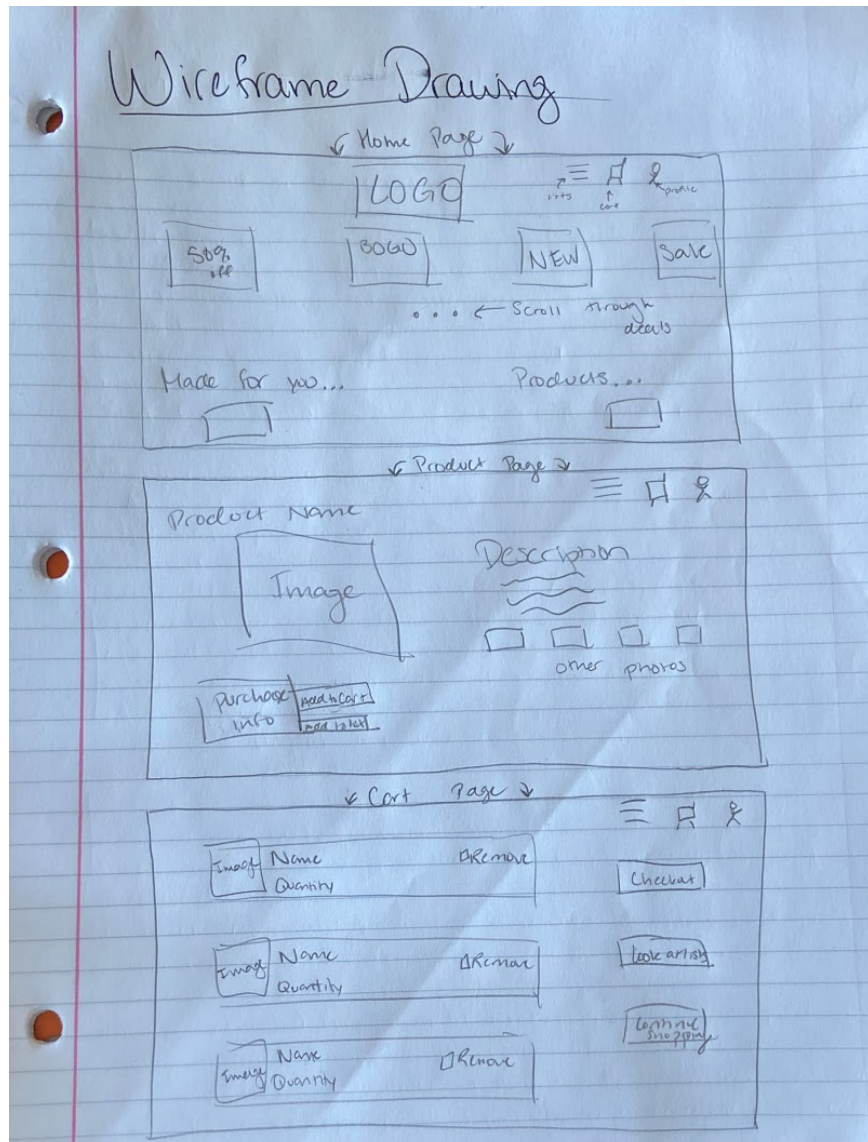 Wireframe Drawing
Home Page
LOGO
lists
cart
profile
50%
off
BOGO
NEW
Sale
Scroll through
deals
Made for you...
Products...
Product Page
Product Name
Image
Description
other photos
Purchase
info
Add to Cart
Add to list
Cart Page
Image
Name
Quantity
Remove
Checkout
Image
Name
Quantity
Remove
Look at list
Image
Name
Quantity
Remove
Continue
Shopping